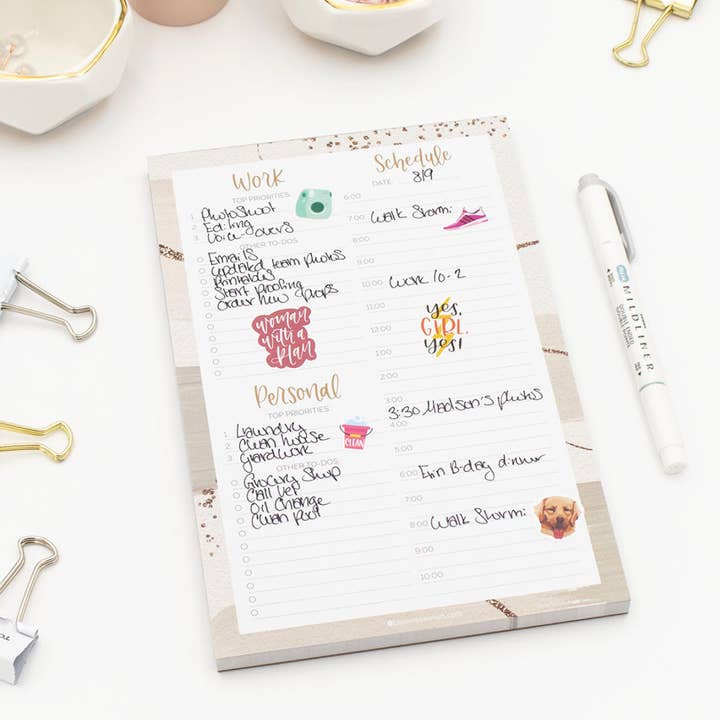 Work
TOP PRIORITIES
1 Photoshoot
2 Editing
3 Voice-overs
OTHER TO-DOS
Emails
updated team photos
Printables
Start Proofing
order new props
woman
with a
plan
Personal
TOP PRIORITIES
1 Laundry
2 Clean house
3 yardwork
CLEAN
OTHER TO-DOS
Grocery Shop
Call Vet
Oil Change
Clean Pool
Schedule
DATE: 8/9
6:00
7:00 Walk Storm:
8:00
9:00
10:00 Work 10-2
11:00
12:00
yes,
GIRL,
yes!
1:00
2:00
3:00
3:30 Madison's photos
4:00
5:00
6:00 Erin B-day dinner
7:00
8:00 Walk Storm:
9:00
10:00
MILDLINER